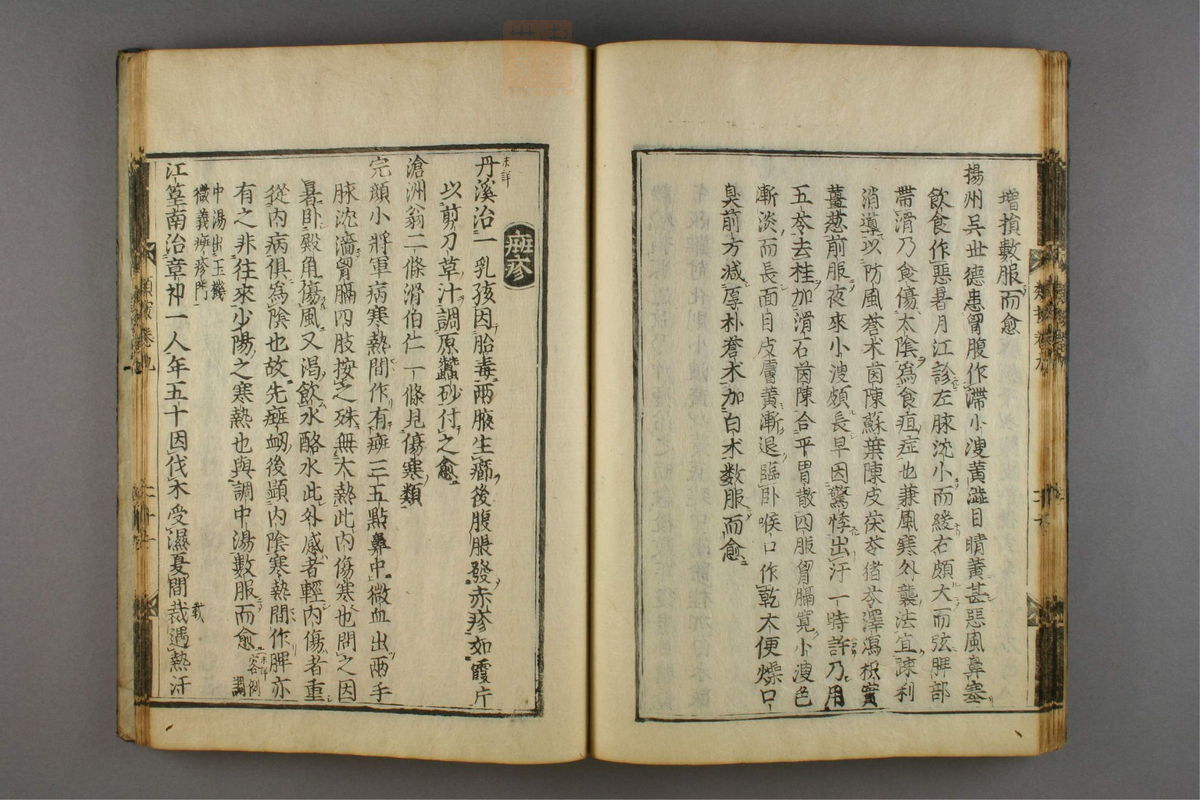 增損數服而愈
揚州吳世德患胸腹作滯小溲黃澁目睛黃甚惡風鼻塞
飲食作惡暑月江診左脉沈小而緩右頗大而弦脾部
帶滑乃食傷太陰爲食疸症也兼風寒外襲法宜疎利
消導以防風蒼朮茵陳蘇葉陳皮茯苓猪苓澤瀉枳實
薑葱前服夜來小溲頗長早因驚悸出汗一時許乃用
五苓去桂加滑石茵陳合平胃散四服胸膈寬小溲色
漸淡而長面目皮膚黃漸退臨卧喉口作乾大便燥口
臭前方減厚朴蒼朮加白朮数服而愈
癍疹
丹溪治一乳孩因胎毒兩腋生癤後腹脹發赤疹如霞片
未詳
以剪刀草汁調原蠶砂付之愈
滄洲翁二條滑伯仁一條見傷寒類
完顏小將軍病寒熱間作有癍三五點鼻中微血出兩手
脉沈濇胸膈四肢按之殊無大熱此內傷寒也問之因
暑卧殿角傷風又渴飲水酪水此外感者輕內傷者重
從內病俱爲陰也故先癍衂後顯內陰寒熱間作脾亦
有之非往來少陽之寒熱也與調中湯數服而愈
中湯出玉機
微義癍疹門
江篁南治章祁一人年五十因伐木受濕夏間裁遇熱汗
類案卷九